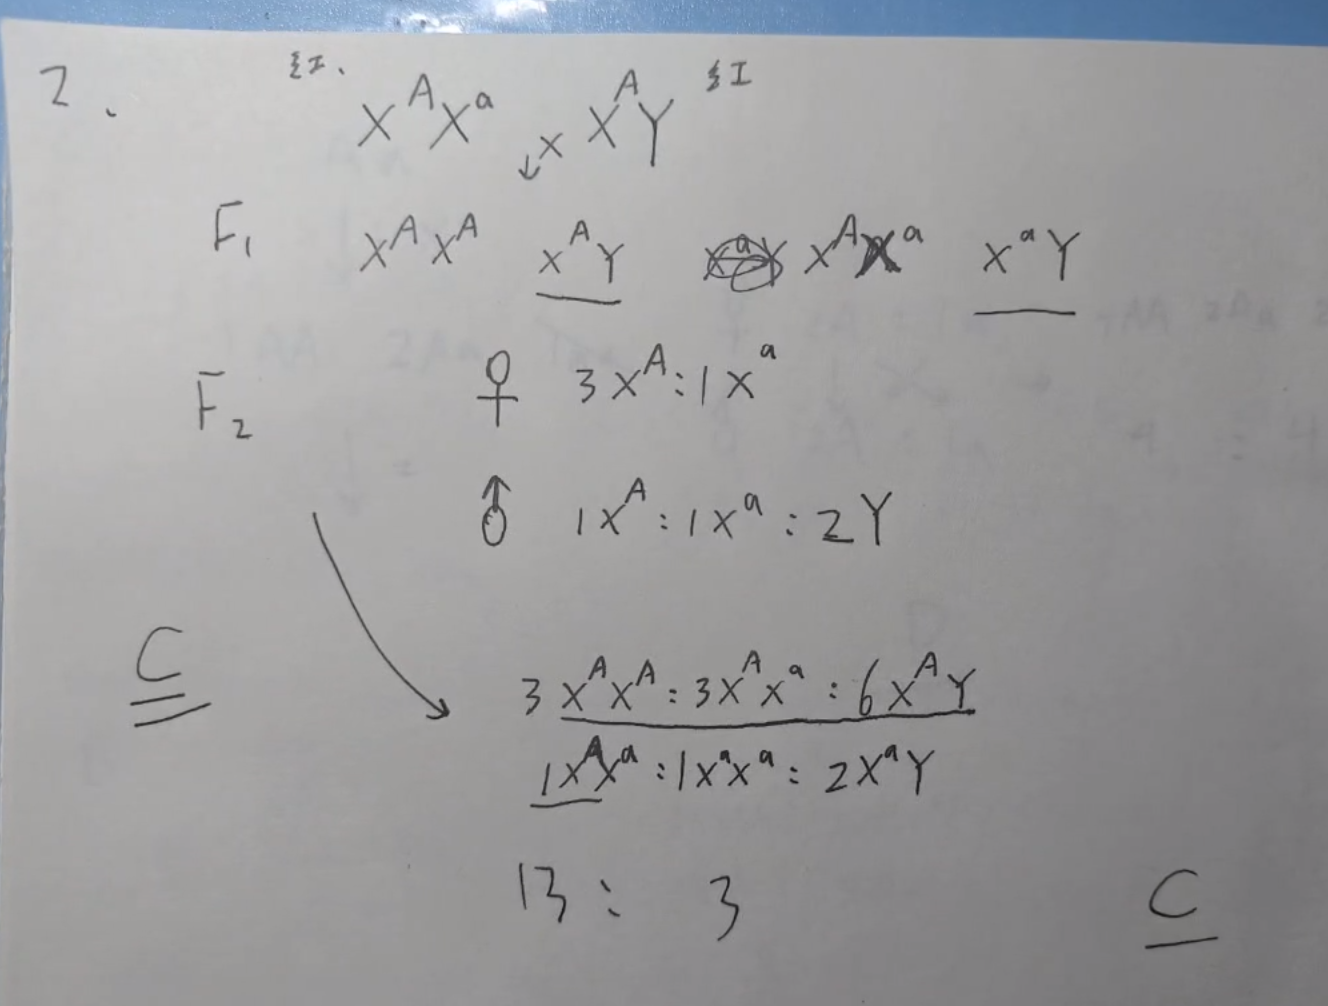 2. 红. X^A X^a × X^A Y 红
↓
F₁ X^A X^A X^A Y X^A X^a X^a Y
F₂ ♀ 3X^A : 1X^a
♂ 1X^A : 1X^a : 2Y
3X^A X^A : 3X^A X^a : 6X^A Y
C
1X^A X^a : 1X^a X^a : 2X^a Y
13 : 3
C